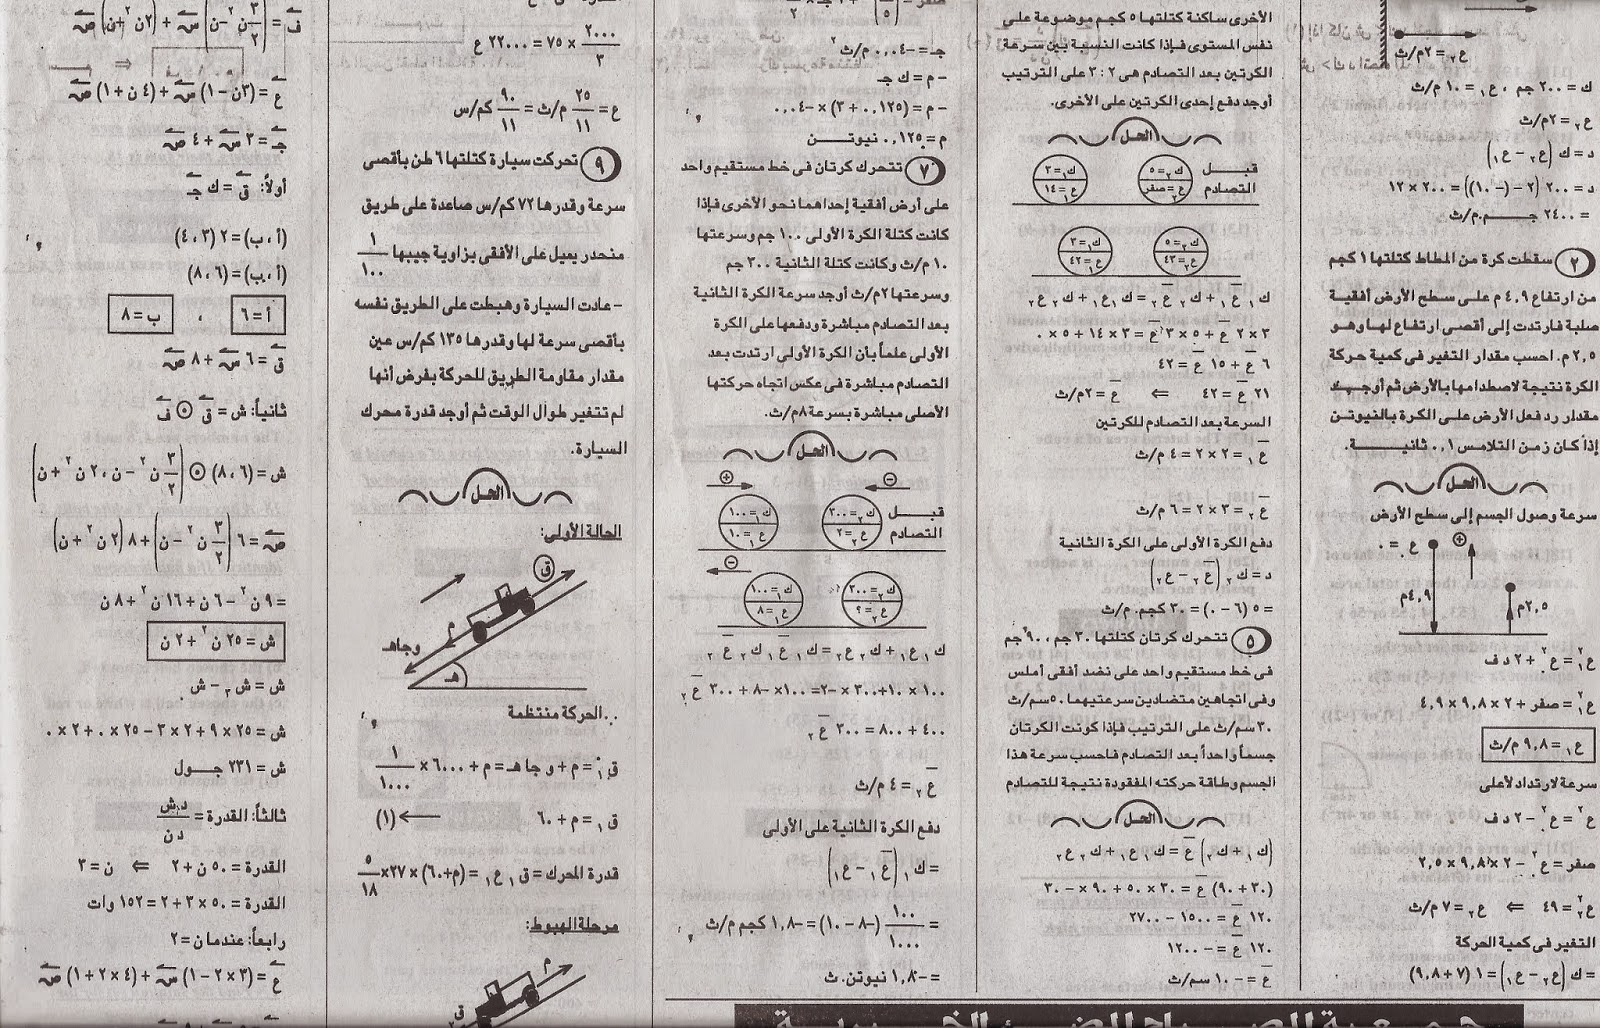 الأخرى ساكنة كتلتها ٥ كجم موضوعة على
نفس المستوى فإذا كانت النسبة بين سرعة
الكرتين بعد التصادم هى ٢ : ٣ على الترتيب
أوجد دفع إحدى الكرتين على الأخرى.
ع٢ = ٢م/ث
ك = ٢٠٠ جم ، ع١ = ١٠ م/ث
ع٢ = ٢م/ث
د = ك (ع٢ − ع١)
د = ٢٠٠ (٢ − (−١٠)) = ٢٠٠ × ١٢
= ٢٤٠٠ جـــم.م/ث
٢ سقطت كرة من المطاط كتلتها ١ كجم
من ارتفاع ٤,٩ م على سطح الأرض أفقية
صلبة فارتدت إلى أقصى ارتفاع لها وهو
٢,٥ م. احسب مقدار التغير فى كمية حركة
الكرة نتيجة لاصطدامها بالأرض ثم أوجد
مقدار رد فعل الأرض على الكرة بالنيوتن
إذا كان زمن التلامس ٠,١ ثانية.
الحل
سرعة وصول الجسم إلى سطح الأرض
ع. = ٠
٤,٩م
٢,٥م
ع١٢ = ع.٢ + ٢ د ف
ع١٢ = صفر + ٢ × ٩,٨ × ٤,٩
ع١ = ٩,٨ م/ث
سرعة لارتداد لأعلى
ع٢ = ع.٢ − ٢ د ف
صفر = ع.٢ − ٢ × ٩,٨ × ٢,٥
ع٢٢ = ٤٩ ⇐ ع٢ = ٧ م/ث
التغير فى كمية الحركة
= ك (ع٢ − ع١) = ١ (٧ + ٩,٨)
الحل
قبل
التصادم
ك٢ = ٥
ع٢ = صفر
ك١ = ٣
ع١ = ١٤
ك٢ = ٥
ع٢ = ٣ع
ك١ = ٣
ع١ = ٢ع
ك١ ع١ + ك٢ ع٢ = ك١ ع١ + ك٢ ع٢
٣ × ٢ ع + ٥ × ٣ ع = ٣ × ١٤ + ٥ × ٠
٦ ع + ١٥ ع = ٤٢
٢١ ع = ٤٢ ⇐ ع = ٢م/ث
السرعة بعد التصادم للكرتين
ع١ = ٢ × ٢ = ٤ م/ث
ع٢ = ٣ × ٢ = ٦ م/ث
دفع الكرة الأولى على الكرة الثانية
د = ك٢ (ع٢ − ع٢)
= ٥ (٦ − ٠) = ٣٠ كجم. م/ث
٥ تتحرك كرتان كتلتها ٣٠ جم ، ٩٠ جم
فى خط مستقيم واحد على نضد أفقى أملس
وفى اتجاهين متضادين سرعتيهما ٥٠سم/ث
٣٠ سم/ث على الترتيب فإذا كونت الكرتان
جسماً واحداً بعد التصادم فاحسب سرعة هذا
الجسم وطاقة حركته المفقودة نتيجة للتصادم
الحل
(ك١ + ك٢) ع = ك١ ع١ + ك٢ ع٢
(٣٠ + ٩٠) ع = ٣٠ × ٥٠ + ٩٠ × −٣٠
١٢٠ ع = ١٥٠٠ − ٢٧٠٠
١٢٠ ع = −١٢٠٠
ع = −١٠ سم/ث
جـ = −٠,٠٤ م/ث٢
− م = ك جـ
− م = (٠,١٢٥ + ٣) × −٠,٠٤
م = ٠,١٢٥ نيوتــن
٧ تتحرك كرتان فى خط مستقيم واحد
على أرض أفقية إحداهما نحو الأخرى فإذا
كانت كتلة الكرة الأولى ١٠٠ جم وسرعتها
١٠ م/ث وكانت كتلة الثانية ٣٠٠ جم
وسرعتها ٢م/ث أوجد سرعة الكرة الثانية
بعد التصادم مباشرة ودفعها على الكرة
الأولى علماً بأن الكرة الأولى ارتدت بعد
التصادم مباشرة فى عكس اتجاه حركتها
الأصلى مباشرة بسرعة ٨م/ث.
الحل
قبل
التصادم
ك٢ = ٣٠٠
ع٢ = ٢
ك١ = ١٠٠
ع١ = ١٠
ك٢ = ٣٠٠
ع٢ = ؟
ك١ = ١٠٠
ع١ = ٨
ك١ ع١ + ك٢ ع٢ = ك١ ع١ ك٢ ع٢
١٠٠ × ١٠ + ٣٠٠ × −٢ = ١٠٠ × −٨ + ٣٠٠ ع٢
٤٠٠ + ٨٠٠ = ٣٠٠ ع٢
ع٢ = ٤ م/ث
دفع الكرة الثانية على الأولى
= ك١ (ع١ − ع١)
= ١٠٠/١٠٠٠ (−٨ − ١٠) = −١,٨ كجم م/ث
= −١,٨ نيوتن. ث
٢٠٠٠/٣ × ٧٥ = ٢٢٠٠٠ ع
ع = ٢٥/١١ م/ث = ٩٠/١١ كم/س
٩ تحركت سيارة كتلتها ٦ طن بأقصى
سرعة وقدرها ٧٢ كم/س صاعدة على طريق
منحدر يميل على الأفقى بزاوية جيبها ١/١٠٠
− عادت السيارة وهبطت على الطريق نفسه
بأقصى سرعة لها وقدرها ١٣٥ كم/س عين
مقدار مقاومة الطريق للحركة بفرض أنها
لم تتغير طوال الوقت ثم أوجد قدرة محرك
السيارة.
الحل
الحالة الأولى:
ق
م
وجاهـ
هـ
∴ الحركة منتظمة
ق١ = م + و جا هـ = م + ٦٠٠٠ × ١/١٠٠٠
ق١ = م + ٦٠ ← (١)
قدرة المحرك = ق١ ع١ = (م+٦٠) × ٢٧ × ٥/١٨
مرحلة الهبوط:
م
ق
ف = (٣/٢ ن٢ − ن) س + (٢ن٢ + ن) ص
ع = (٣ن − ١) س + (٤ ن + ١) ص
جـ = ٣ س + ٤ ص
أولاً: ق = ك جـ
(أ ، ب) = ٢ (٣ ، ٤)
(أ ، ب) = (٦ ، ٨)
أ = ٦ ، ب = ٨
ق = ٦ س + ٨ ص
ثانياً: ش = ق ⊙ ف
ش = (٦ ، ٨) ⊙ (٣/٢ ن٢ − ن ، ٢ ن٢ + ن)
ص = ٦ (٣/٢ ن٢ − ن) + ٨ (٢ ن٢ + ن)
= ٩ ن٢ − ٦ ن + ١٦ ن٢ + ٨ ن
ش = ٢٥ ن٢ + ٢ ن
ش = ش٣ − ش
ش = ٢٥ × ٩ + ٢ × ٣ − ٢٥ × ٠ + ٢ × ٠
ش = ٢٣١ جــول
ثالثاً: القدرة = د.ش/د ن
القدرة = ٥٠ ن + ٢ ⇐ ن = ٣
القدرة = ٥٠ × ٣ + ٢ = ١٥٢ وات
رابعاً: عندما ن = ٢
ع = (٣ × ٢ − ١) س + (٤ × ٢ + ١) ص